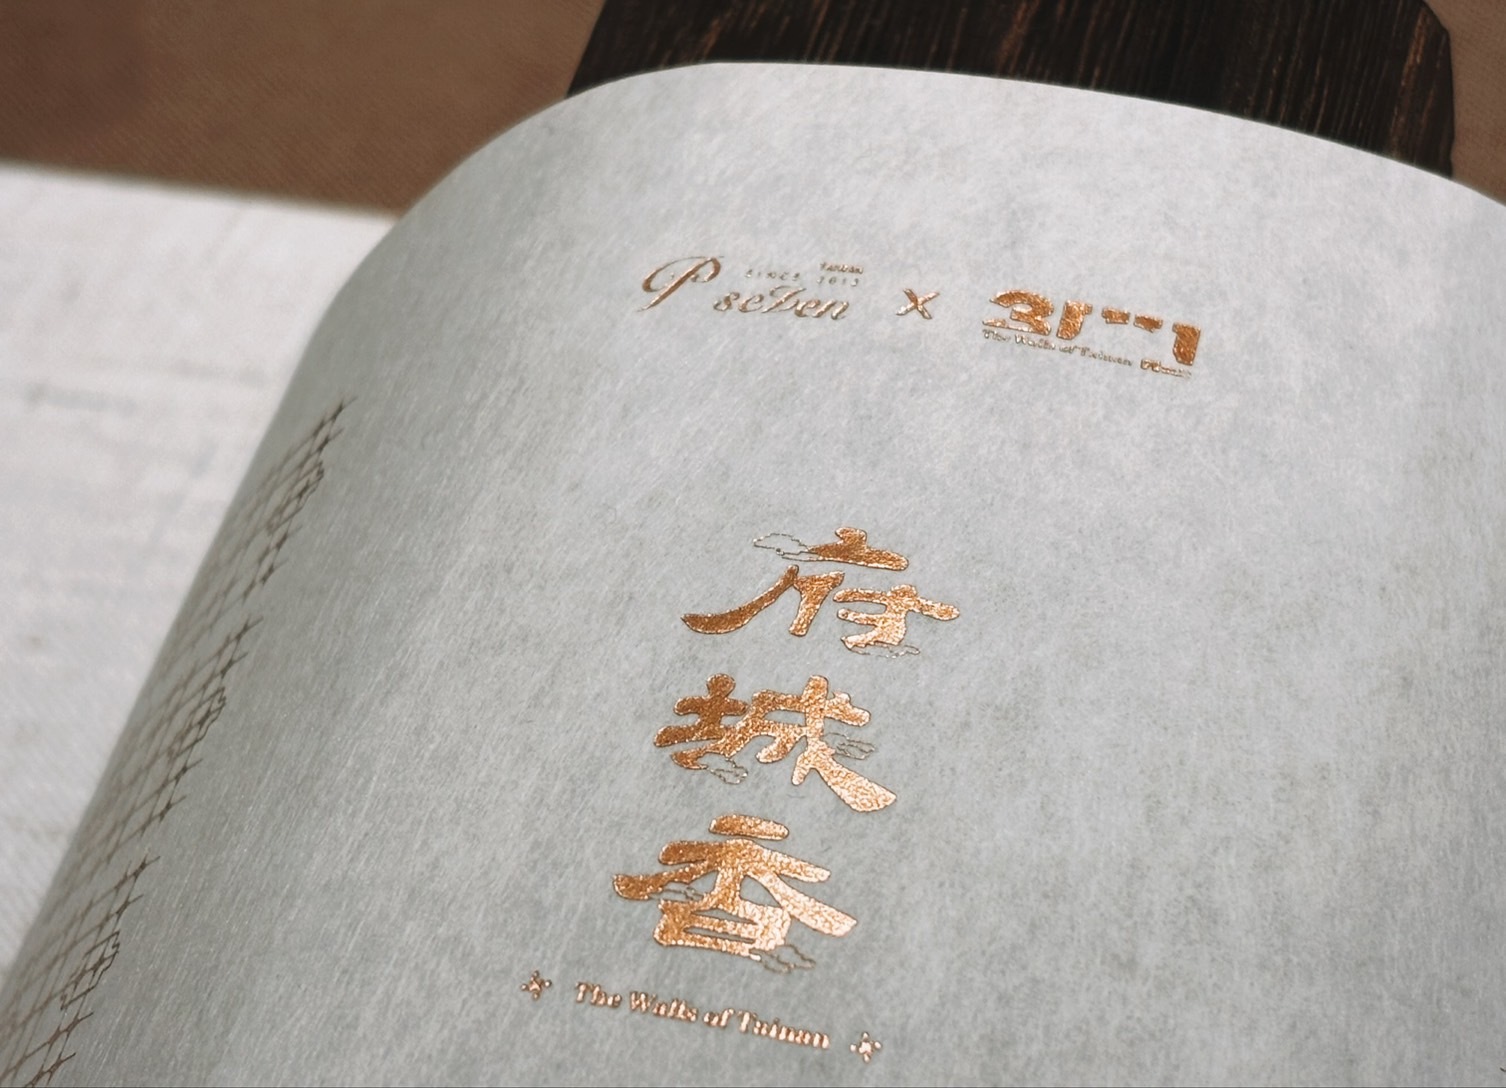 TAINAN
SINCE 2013
P seven × 311
The Walls of Tainan
府
城
香
The Walls of Tainan